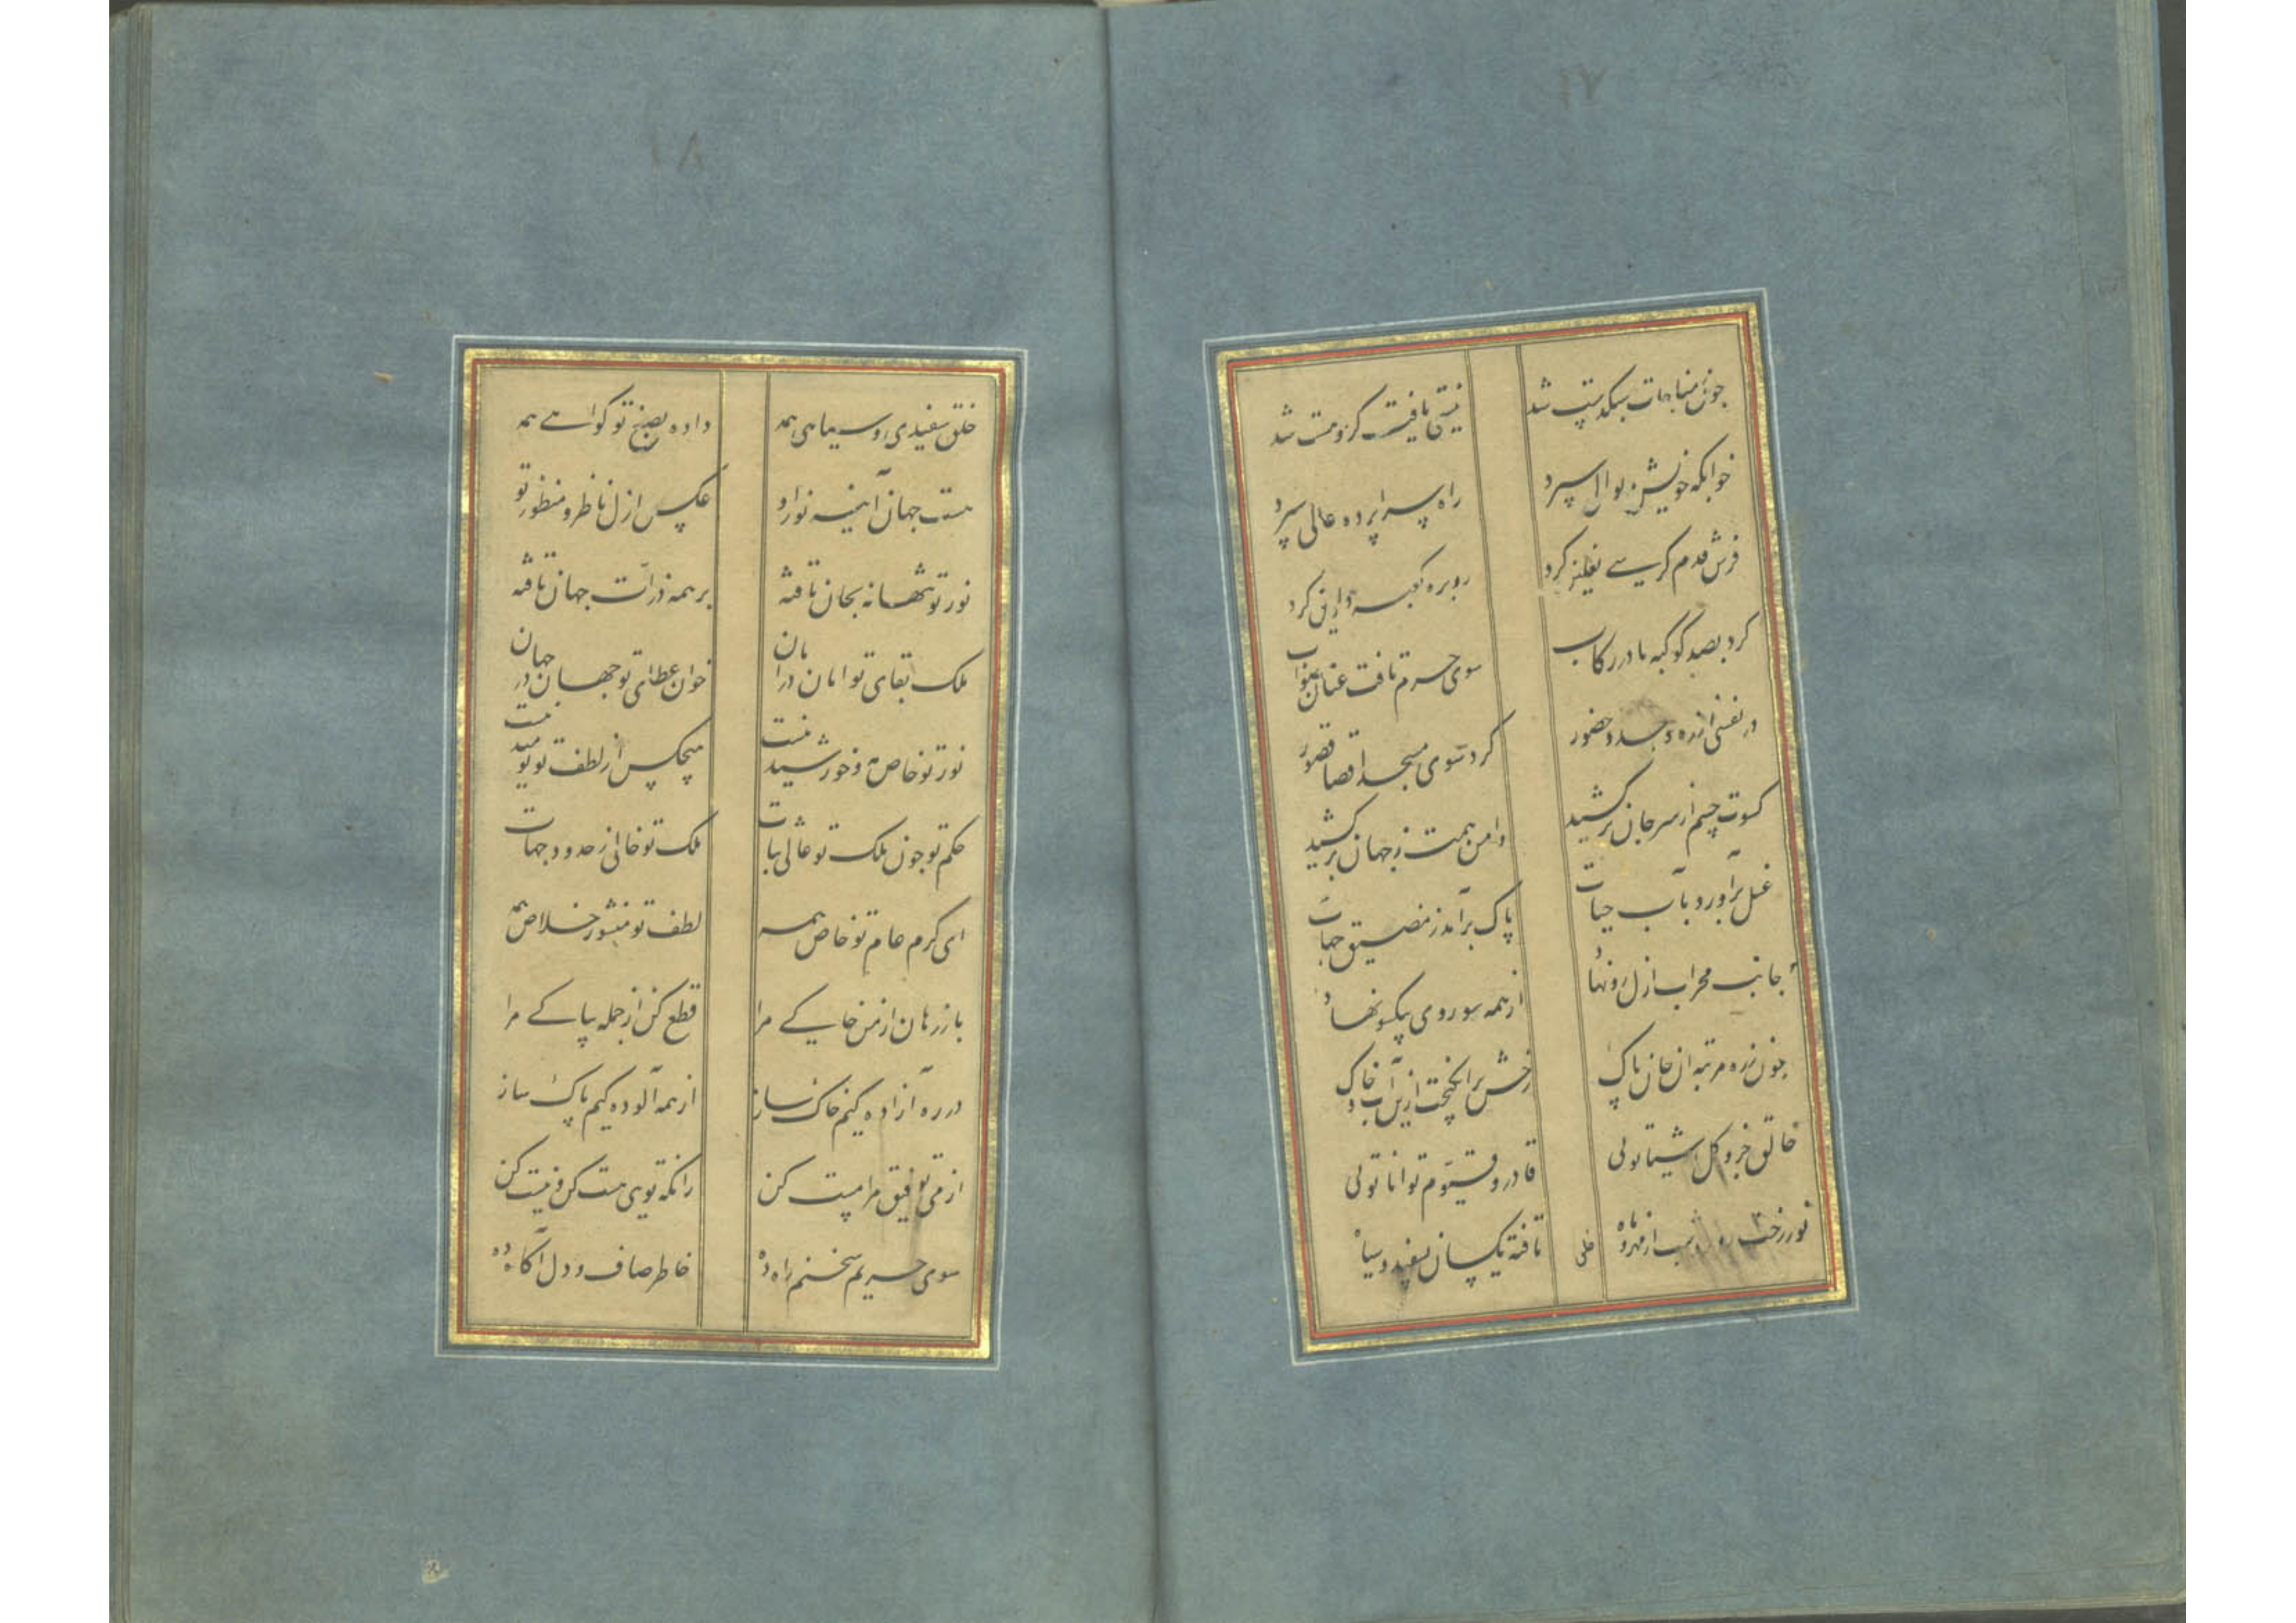 ۱۷
چون بمناجات سبکدست شد نیستیی یافت کزو مست شد
خوابگه خویش بوالی سپرد راه سراپرده عالی سپرد
فرش قدم کرسی نعلین کرد روبره کعبه دارین کرد
کرد بصد کوکبه پا در رکاب سوی حرم تافت عنان صواب
در نفسی از ره وجد و حضور کرد سوی مسجد اقصا قصور
کسوت جسم از سر جان برکشید دامن همت ز جهان برکشید
غسل برآورد بآب حیات پاک برآمد ز مضیق جهات
جانب محراب ازل رو نهاد از همه سو روی بیکسو نهاد
چون زده مرتبه آن جان پاک رخش برانگیخت ازین آب و خاک
خالق جزو و کل اشیا تویی قادر و قیوم توانا تویی
نور رخت شب از مهر و ماه تافته یکسان بسفید و سیاه
خلق
۱۸
خلق سفیدی و سیاهی همه داده بصنع تو گواهی همه
هست جهان آینه نور تو عکس ازل ناظر و منظور تو
نور تو تنها نه بجان تافته بر همه ذرات جهان تافته
ملک بقای تو امان در امان خوان عطای تو جهان در جهان
نور تو خاص مه و خورشید نیست هیچکس از لطف تو نومید نیست
حکم تو چون ملک تو عالی ثبات ملک تو خالی ز حدود جهات
ای کرم عام تو خاص همه لطف تو منشور خلاص همه
باز رهان از من خاکی مرا قطع کن از جمله بپاکی مرا
در ره آزاده کیم خاک ساز از همه آلوده کیم پاک ساز
از می توفیق مرا مست کن زانکه تویی هست کن و نیست کن
سوی حریم سخنم راه ده خاطر صاف و دل آگاه ده